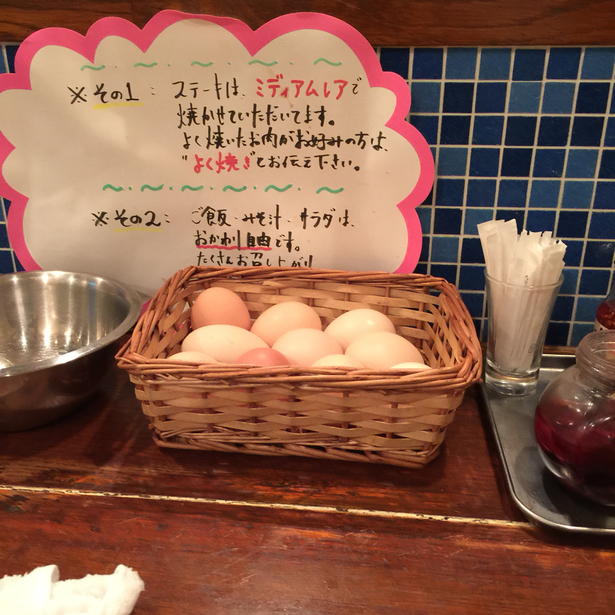 ※その1: ステーキは、ミディアムレアで
焼かせていただいてます。
よく焼いたお肉がお好みの方は、
"よく焼き"とお伝え下さい。
※その2: ご飯・みそ汁・サラダは、
おかわり自由です。
たくさんお召し上がり